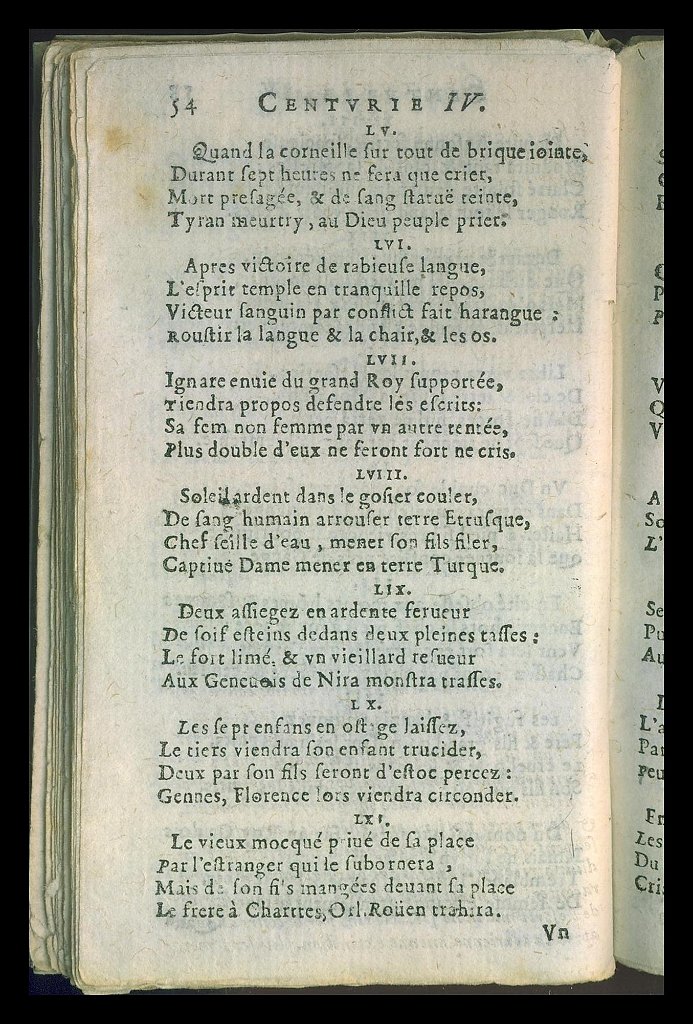 54 CENTVRIE IV.
LV.
Quand la corneille ſur tout de brique iointe,
Durant ſept heures ne fera que crier,
Mort preſagée, & de ſang ſtatuë teinte,
Tyran meurtry, au Dieu peuple prier.
LVI.
Apres victoire de rabieuſe langue,
L'eſprit temple en tranquille repos,
Victeur ſanguin par conflict fait harangue :
Rouſtir la langue & la chair, & les os.
LVII.
Ignare enuie du grand Roy ſupportée,
Tiendra propos defendre les eſcrits:
Sa fem non femme par vn autre tentée,
Plus double d'eux ne feront fort ne cris.
LVIII.
Soleil ardent dans le goſier couler,
De ſang humain arrouſer terre Etruſque,
Chef ſeille d'eau, mener ſon fils filer,
Captiue Dame mener en terre Turque.
LIX.
Deux aſſiegez en ardente ferueur
De ſoif eſteins dedans deux pleines taſſes :
Le fort limé, & vn vieillard reſueur
Aux Geneuois de Nira monſtra traſſes.
LX.
Les ſept enfans en oſtage laiſſez,
Le tiers viendra ſon enfant trucider,
Deux par ſon fils ſeront d'eſtoc percez :
Gennes, Florence lors viendra circonder.
LXI.
Le vieux mocqué priué de ſa place
Par l'eſtranger qui le ſubornera ,
Mais de ſon fils mangées deuant ſa place
Le frere à Chartres, Orl. Roüen trahira.
Vn